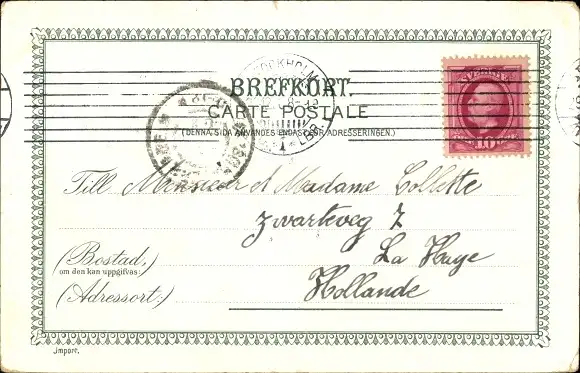 STOCKHOLM
BREFKORT.
CARTE POSTALE
(DENNA SIDA ANVÄNDES ENDAST FÖR ADRESSERINGEN.)
SVERIGE
10
Till Monsieur et Madame Collette
Zwarteweg 7
(Bostad,)
om den kan uppgifvas:
La Haye
(Adressort:)
Hollande
Import.